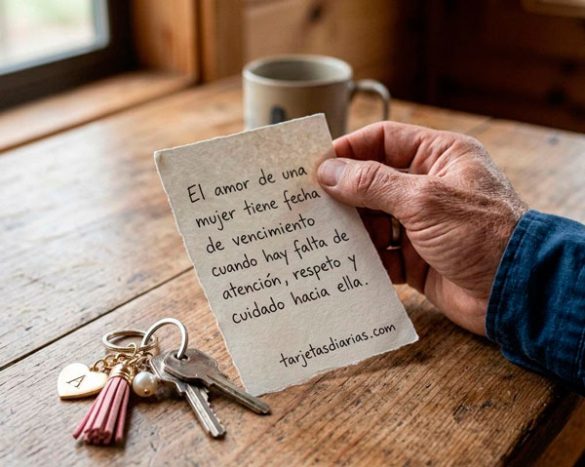 El amor de una
mujer tiene fecha
de vencimiento
cuando hay falta de
atención, respeto y
cuidado hacia ella.
tarjetasdiarias.com
A